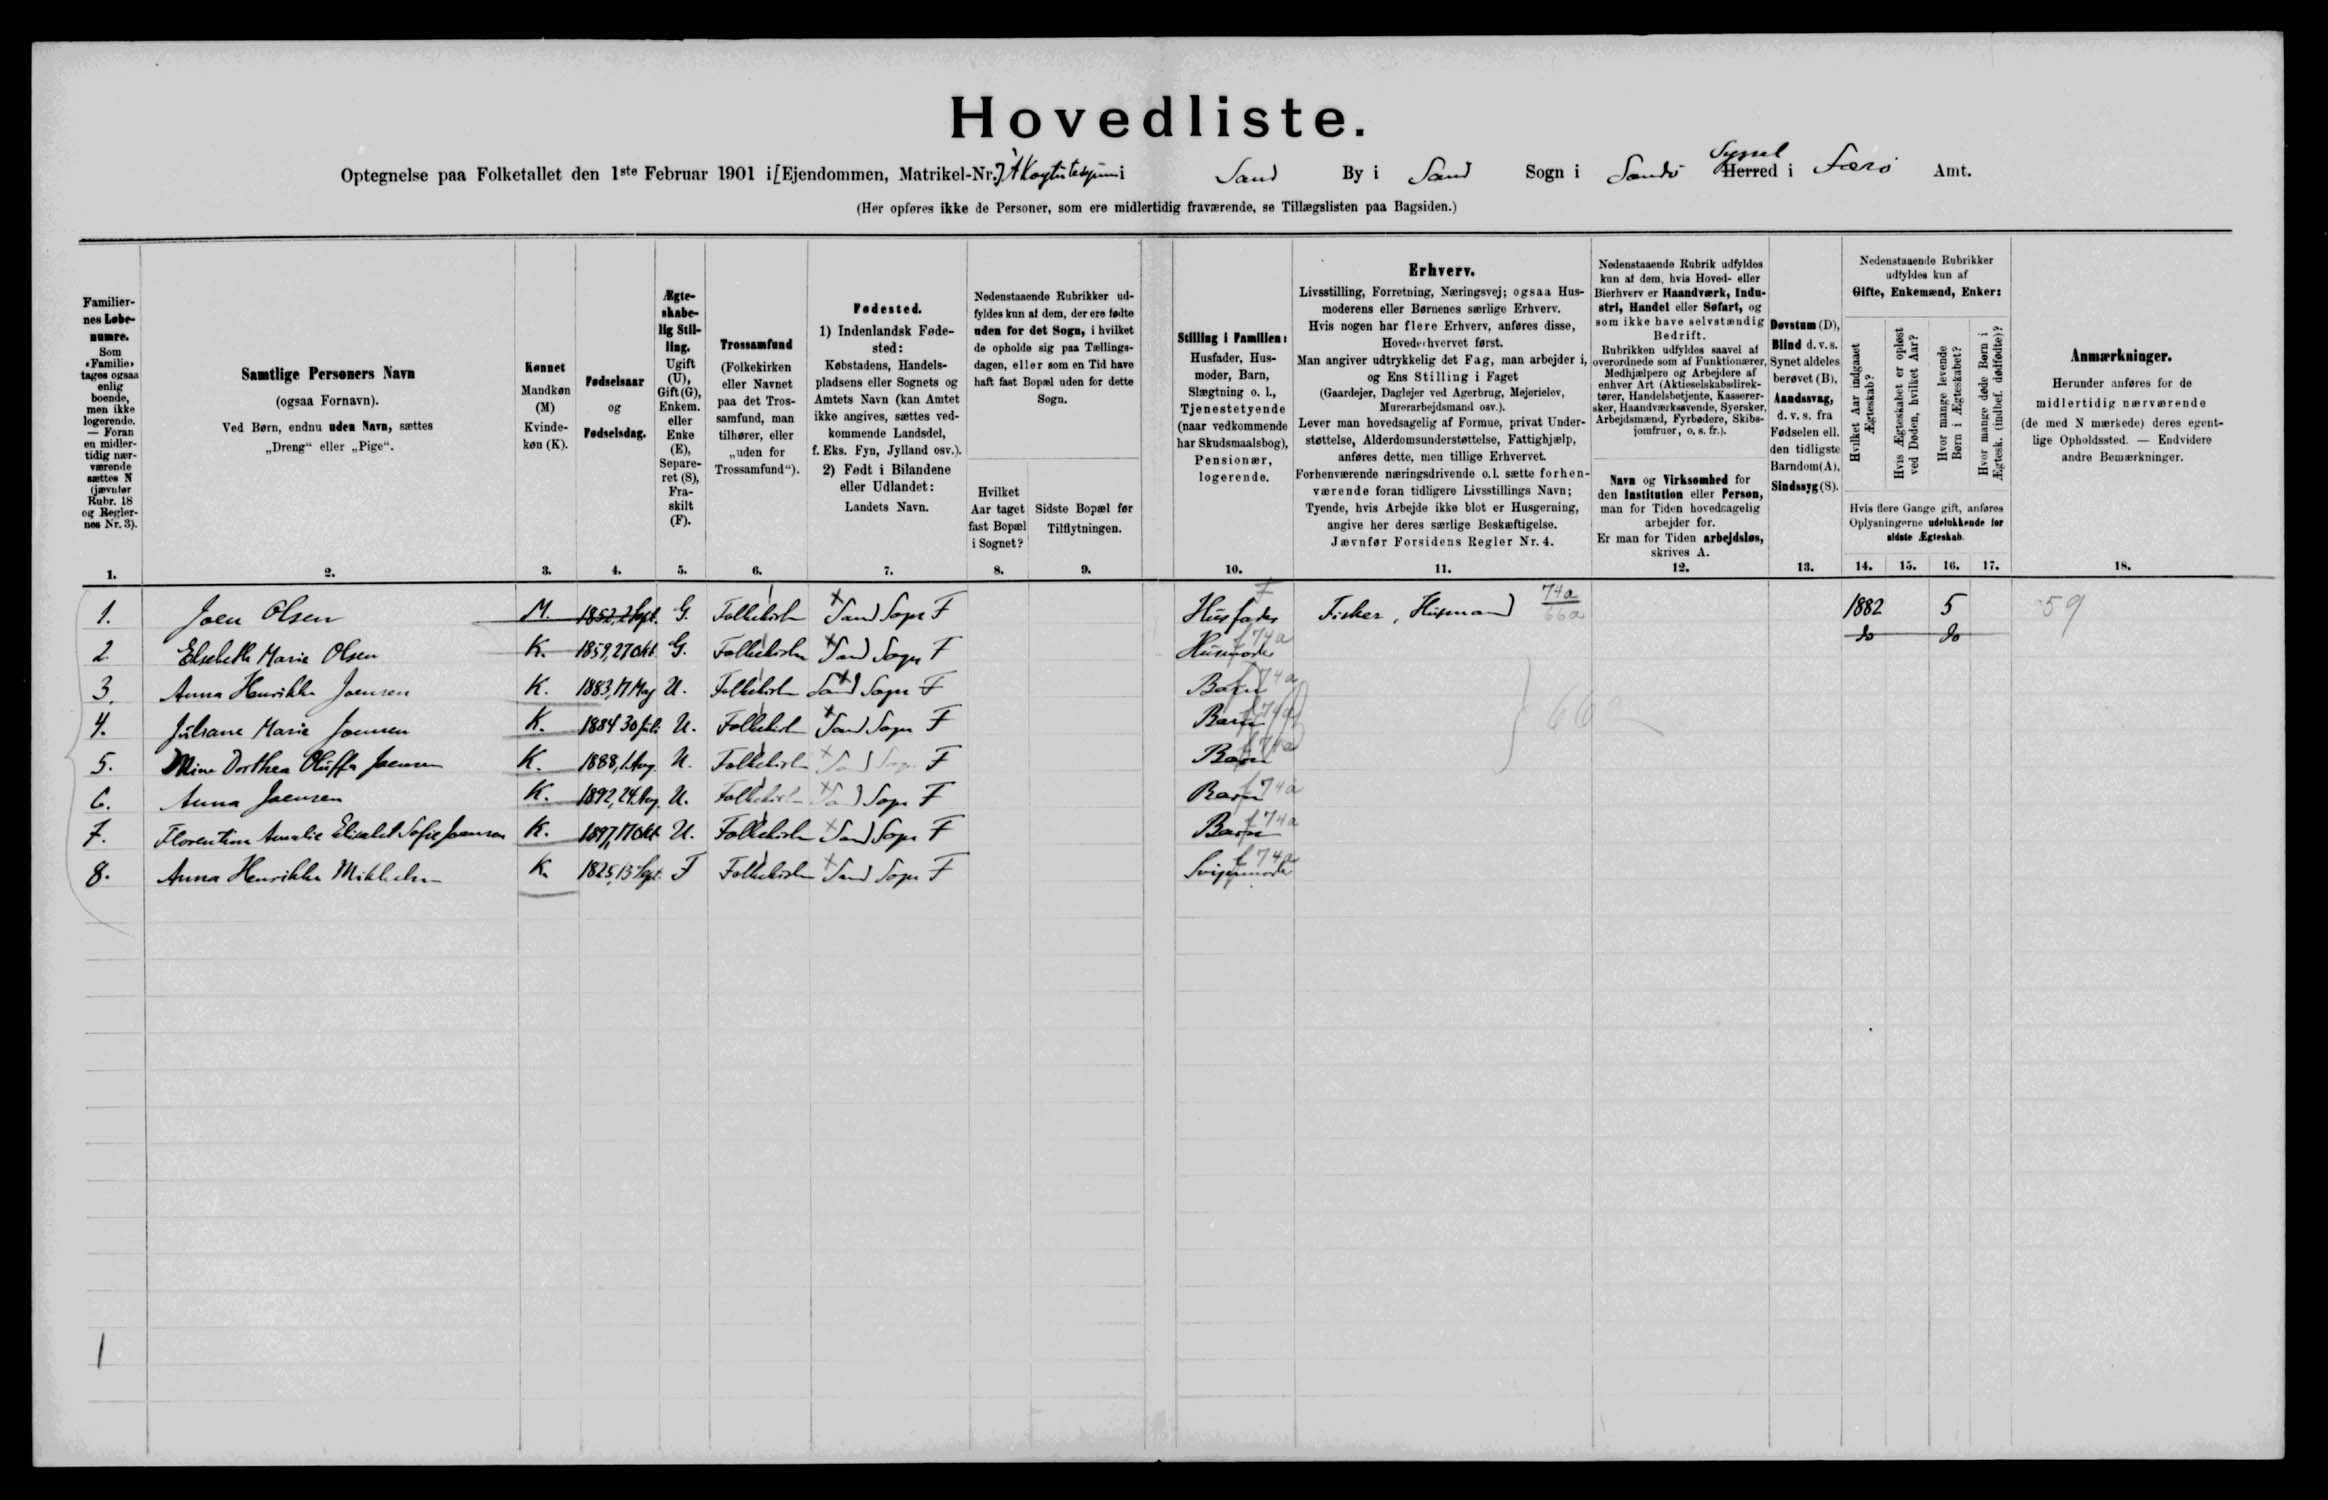 Hovedliste.
Optegnelse paa Folketallet den 1ste Februar 1901 i [Ejendommen, Matrikel-Nr.] i Sand By i Sand Sogn i Sandø Syssel Herred i Færø Amt.
(Her opføres ikke de Personer, som ere midlertidig fraværende, se Tillægslisten paa Bagsiden.)
Familier-
nes Løbe-
numre.
Som
«Familie»
tages ogsaa
enlig
boende,
men ikke
logerende.
— Foran
en midler-
tidig nær-
værende
sættes N
(jævnfør
Rubr. 18
og Regler-
nes Nr. 3).
1.
Samtlige Personers Navn
(ogsaa Fornavn).
Ved Børn, endnu uden Navn, sættes
„Dreng“ eller „Pige“.
2.
Kønnet
Mandkøn
(M)
Kvinde-
køn (K).
3.
Fødselsaar
og
Fødselsdag.
4.
Ægte-
skabe-
lig Stil-
ling.
Ugift
(U),
Gift (G),
Enkem.
eller
Enke
(E),
Separe-
ret (S),
Fra-
skilt
(F).
5.
Trossamfund
(Folkekirken
eller Navnet
paa det Tros-
samfund, man
tilhører, eller
„uden for
Trossamfund“).
6.
Fødested.
1) Indenlandsk Føde-
sted:
Købstadens, Handels-
pladsens eller Sognets og
Amtets Navn (kan Amtet
ikke angives, sættes ved-
kommende Landsdel,
f. Eks. Fyn, Jylland osv.).
2) Født i Bilandene
eller Udlandet:
Landets Navn.
7.
Nedenstaaende Rubrikker ud-
fyldes kun af dem, der ere fødte
uden for det Sogn, i hvilket
de opholde sig paa Tællings-
dagen, eller som en Tid have
haft fast Bopæl uden for dette
Sogn.
Hvilket
Aar taget
fast Bopæl
i Sognet?
8.
Sidste Bopæl før
Tilflytningen.
9.
Stilling i Familien:
Husfader, Hus-
moder, Barn,
Slægtning o. l.,
Tjenestetyende
(naar vedkommende
har Skudsmaalsbog),
Pensionær,
logerende.
10.
Erhverv.
Livsstilling, Forretning, Næringsvej; ogsaa Hus-
moderens eller Børnenes særlige Erhverv.
Hvis nogen har flere Erhverv, anføres disse,
Hovederhvervet først.
Man angiver udtrykkelig det Fag, man arbejder i,
og Ens Stilling i Faget
(Gaardejer, Daglejer ved Agerbrug, Mejerielev,
Murerarbejdsmand osv.).
Lever man hovedsagelig af Formue, privat Under-
støttelse, Alderdomsunderstøttelse, Fattighjælp,
anføres dette, men tillige Erhvervet.
Forhenværende næringsdrivende o.l. sætte forhen-
værende foran tidligere Livsstillings Navn;
Tyende, hvis Arbejde ikke blot er Husgerning,
angive her deres særlige Beskæftigelse.
Jævnfør Forsidens Regler Nr. 4.
11.
Nedenstaaende Rubrik udfyldes
kun af dem, hvis Hoved- eller
Bierhverv er Haandværk, Indu-
stri, Handel eller Søfart, og
som ikke have selvstændig
Bedrift.
Rubrikken udfyldes saavel af
overordnede som af Funktionærer,
Medhjælpere og Arbejdere af
enhver Art (Aktieselskabsdirek-
tører, Handelsbetjente, Kasserer-
sker, Haandværkssvende, Syersker,
Arbejdsmænd, Fyrbødere, Skibs-
jomfruer, o. s. fr.).
Navn og Virksomhed for
den Institution eller Person,
man for Tiden hovedsagelig
arbejder for.
Er man for Tiden arbejdsløs,
skrives A.
12.
Døvstum (D),
Blind d. v. s.
Synet aldeles
berøvet (B),
Aandssvag,
d. v. s. fra
Fødselen ell.
den tidligste
Barndom (A),
Sindssyg (S).
13.
Nedenstaaende Rubrikker
udfyldes kun af
Gifte, Enkemænd, Enker:
Hvilket Aar indgaaet
Ægteskab?
Hvis Ægteskabet er opløst
ved Døden, hvilket Aar?
Hvor mange levende
Børn i Ægteskabet?
Hvor mange døde Børn i
Ægtesk. (indbef. dødfødte)?
Hvis flere Gange gift, anføres
Oplysningerne udelukkende for
sidste Ægteskab.
14. 15. 16. 17.
Anmærkninger.
Herunder anføres for de
midlertidig nærværende
(de med N mærkede) deres egent-
lige Opholdssted. — Endvidere
andre Bemærkninger.
18.
1. Joen Olsen M. 1852, 2 Sept. G. Folkekirken Sand Sogn F Husfader F Fisker, Husmand 74a 66a 1882 5 59
2. Elsebeth Marie Olsen K. 1859, 27 Okt. G. Folkekirken Sand Sogn F Husmoder f 74a do do
3. Anna Henrikke Joensen K. 1883, 17 Maj U. Folkekirken Sand Sogn F Barn f 74a
4. Juliane Marie Joensen K. 1884 30 Juli U. Folkekirken Sand Sogn F Barn f 74a 66a
5. Mine Dorthea Oluffa Joensen K. 1888, 1. Aug. U. Folkekirken Sand Sogn F Barn f 74a
6. Anna Joensen K. 1892, 24. Aug. U. Folkekirken Sand Sogn F Barn f 74a
7. Florentine Amalie Elisabet Sofie Joensen K. 1897, 17 Okt. U. Folkekirken Sand Sogn F Barn f 74a
8. Anna Henrikke Mikkelsen K. 1825, 13 Sept. F Folkekirken Sand Sogn F Svigermoder f 74a
1